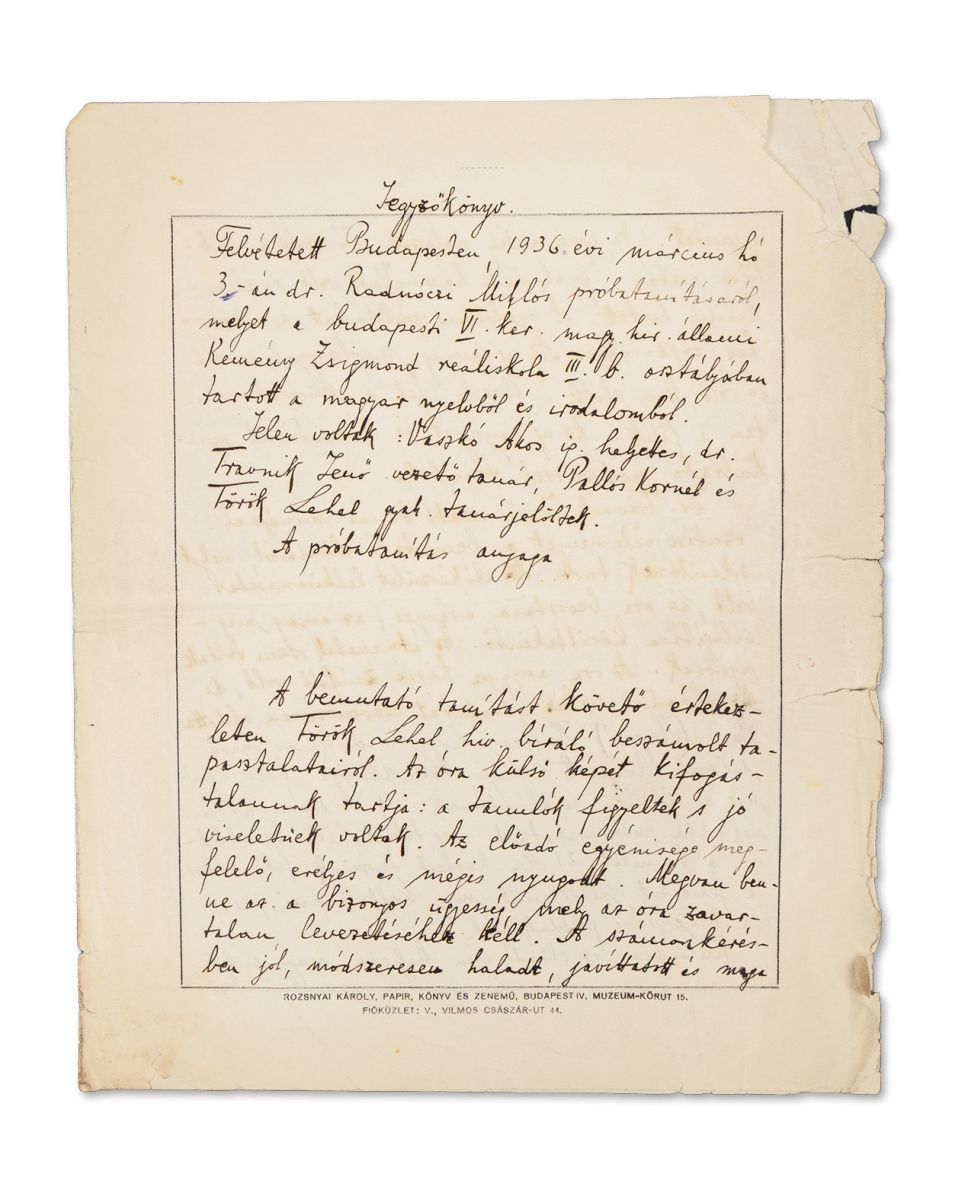 Jegyzőkönyv.
Felvétetett Budapesten, 1936. évi március hó
3.-án dr. Radnóczi Miklós próbatanításáról,
melyet a budapesti VI. ker. magy. kir. állami
Kemény Zsigmond reáliskola III. b. osztályában
tartott a magyar nyelvből és irodalomból.
Jelen voltak : Vaszkó Ákos ig. helyettes, dr.
Travnik Jenő vezető tanár, Pallós Kornél és
Török Lehel gyak. tanárjelöltek.
A próbatanítás anyaga
A bemutató tanítást követő értekez-
leten Török Lehel, hiv. bíráló beszámolt ta-
pasztalatairól. Az óra külső képét kifogás-
talannak tartja : a tanulók figyeltek s jó
viseletűek voltak. Az előadó egyénisége meg-
felelő, erélyes és mégis nyugodt. Megvan ben-
ne az a bizonyos ügyesség, mely az óra zavar-
talan levezetéséhez kell. A számonkérés-
ben jól, módszeresen haladt, javíttatott és maga
ROZSNYAI KÁROLY, PAPIR, KÖNYV ÉS ZENEMŰ, BUDAPEST IV. MUZEUM-KÖRUT 15.
FIÓKÜZLET: V., VILMOS CSÁSZÁR-UT 44.